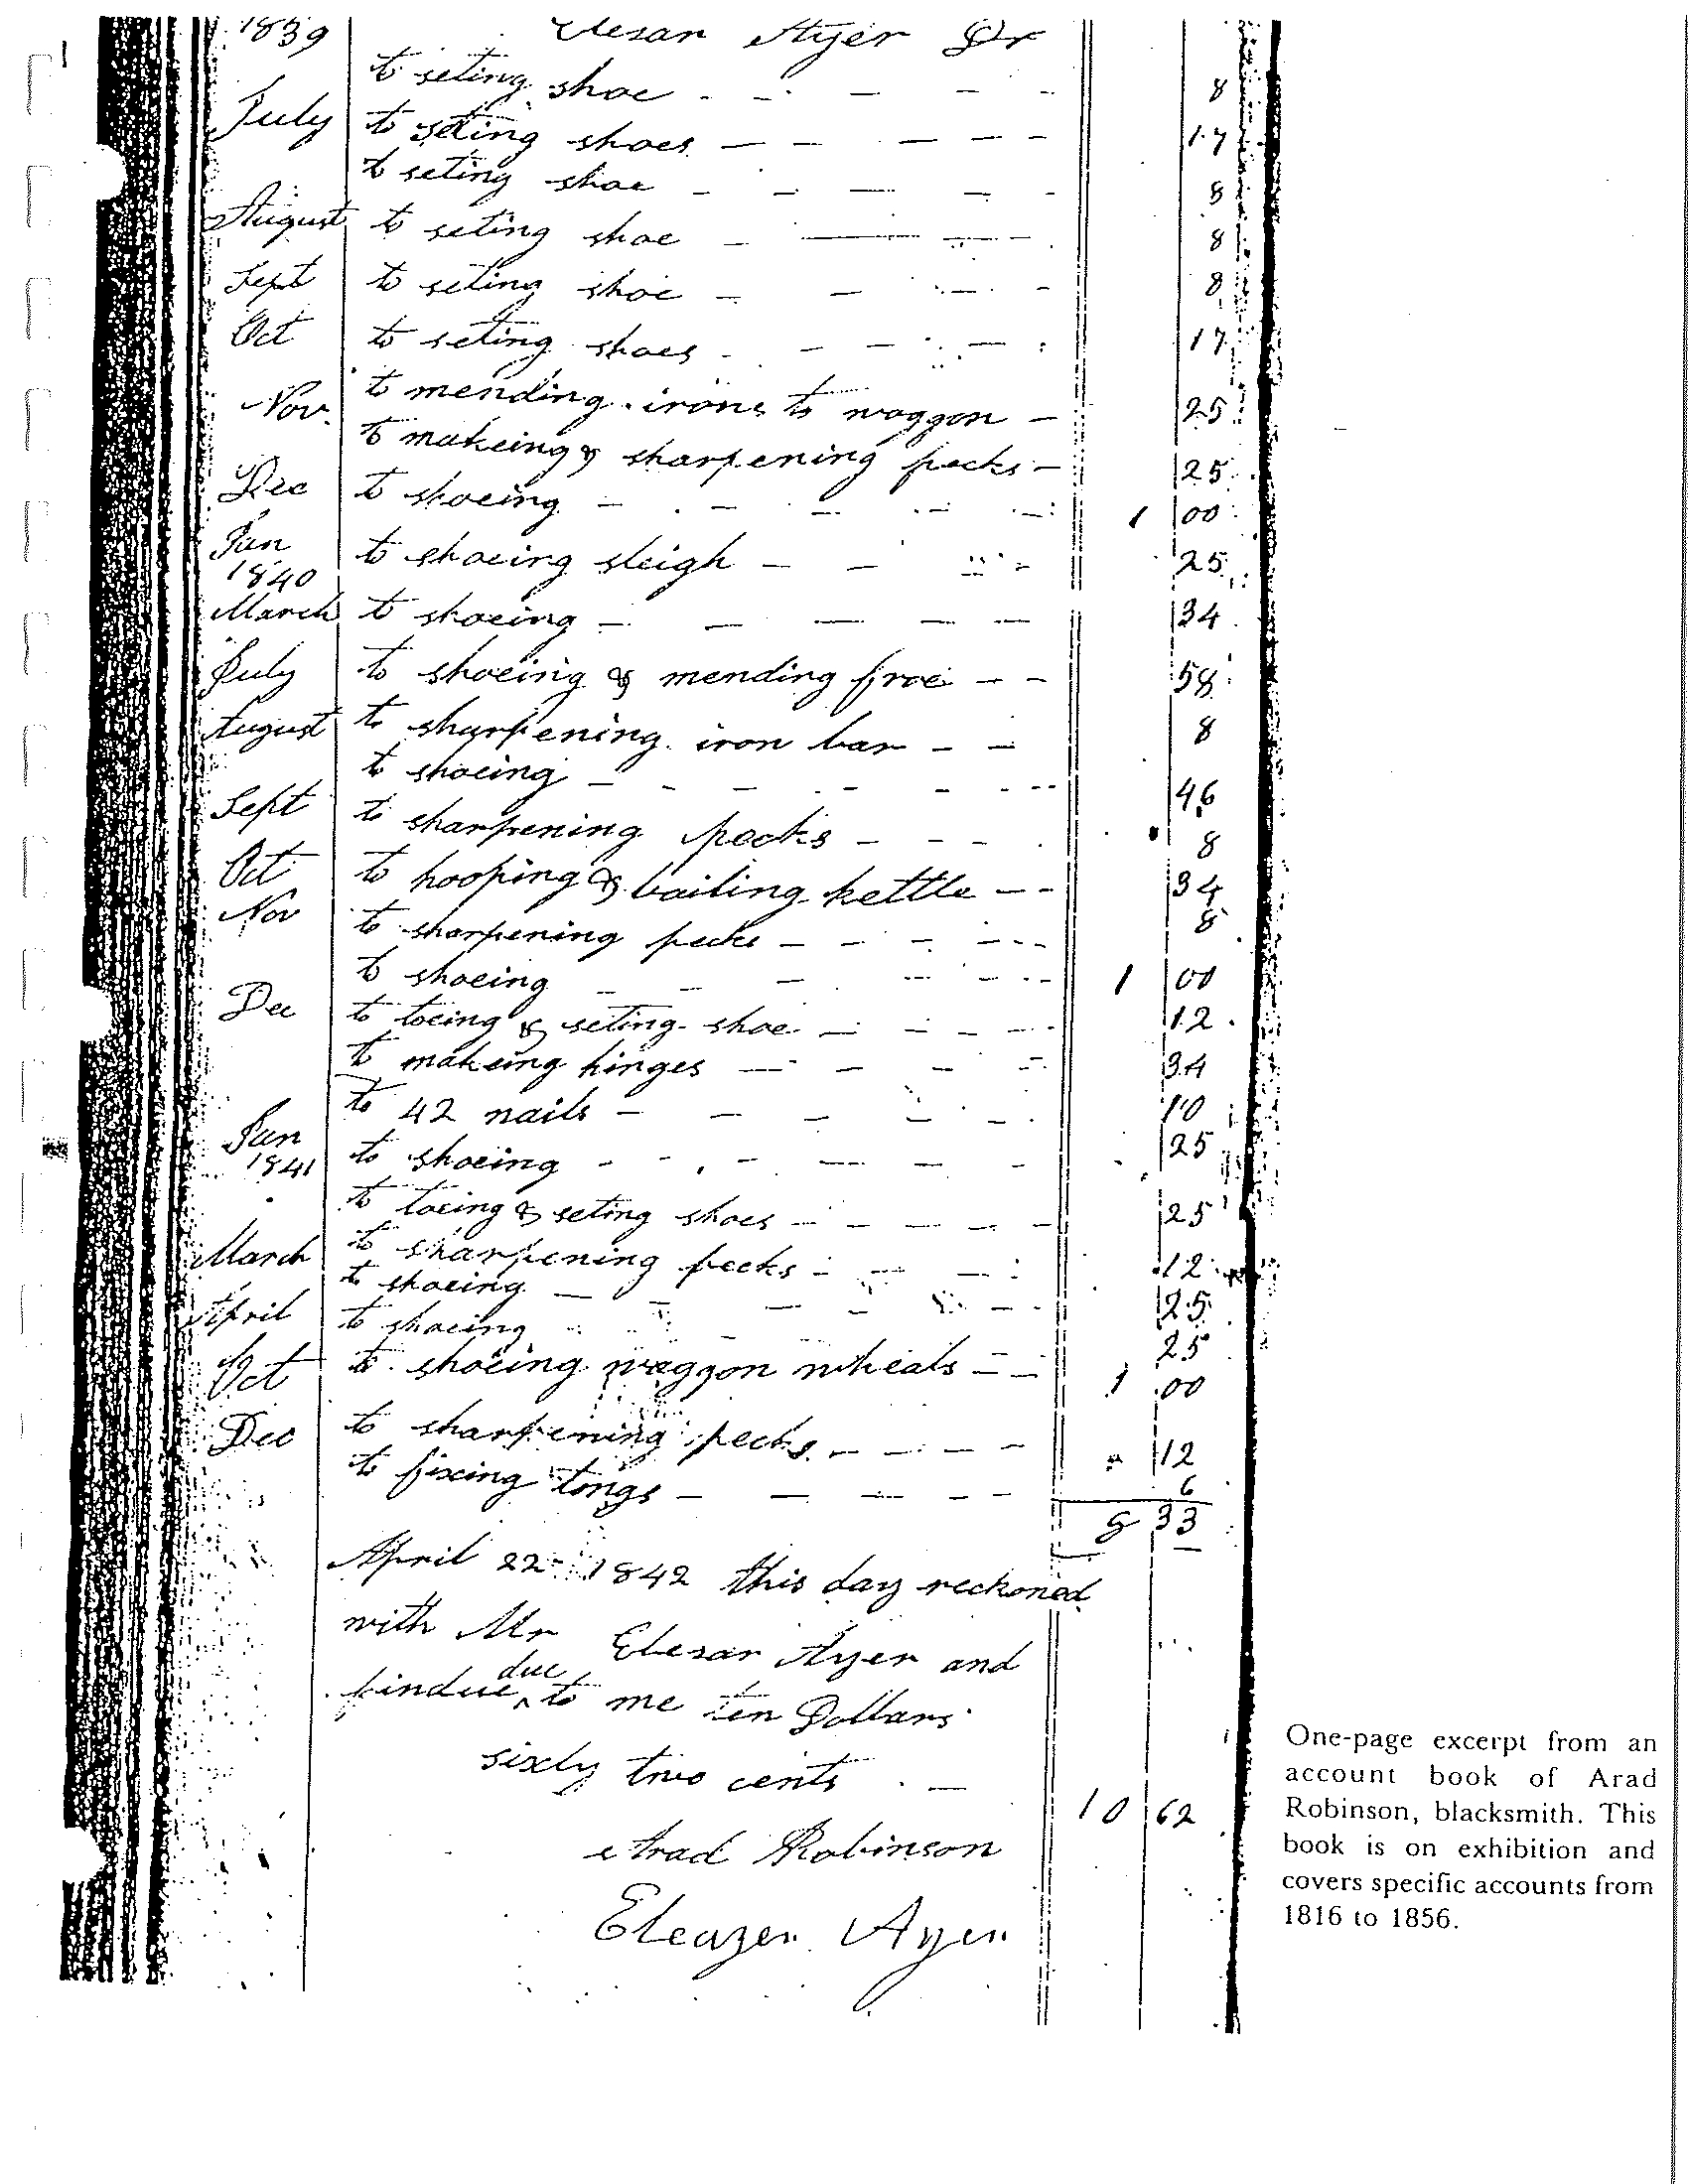 1839 Elesar Ayer Dr
to seting shoe - - - - - 8
July to seting shoes - - - - - 17
to seting shoe - - - - - 8
August to seting shoe - - - - 8
Sept to seting shoe - - - - 8
Oct to seting shoes - - - - 17
Nov. to mending irons to waggon - 25
to makeing & sharpening pecks - 25
Dec to shoeing - - - - - 1 00
Jan 1840 to shoeing sleigh - - - 25
March to shoeing - - - - - 34
July to shoeing & mending froe - - 58
August to sharpening iron bar - - 8
to shoeing - - - - - - 46
Sept to sharpening pecks - - - - 8
Oct to hooping & bailing kettle - - 34
Nov to sharpening pecks - - - - 8
to shoeing - - - - - 1 00
Dec to toeing & seting shoe - - - - 12
to makeing hinges - - - - 34
to 42 nails - - - - - 10
Jan 1841 to shoeing - - - - - 25
to toeing & seting shoes - - - - - 25
March to sharpening pecks - - - 12
to shoeing - - - - - 25
April to shoeing - - - 25
Oct to shoeing waggon wheals - - 1 00
Dec to sharpening pecks - - - - 12
to fixing tongs - - - - - 6
8 33
April 22 1842 this day reckoned
with Mr Elesar Ayer and
findue due to me ten Dollars
sixty two cents - 10 62
Arad Robinson
Eleazer Ayer
One-page excerpt from an
account book of Arad
Robinson, blacksmith. This
book is on exhibition and
covers specific accounts from
1816 to 1856.